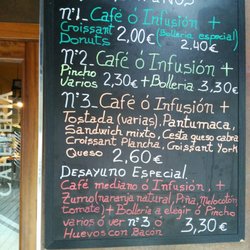 Nº1_ Café ó Infusión +
Croissant 2,00€ (Bolleria especial)
Donuts 2,40€
Nº2_ Café ó Infusión +
Pincho
Varios 2,30€ + Bolleria 3,30
Nº3_ Café ó Infusión +
Tostada (varias), Pantumaca,
Sandwich mixto, Cesta queso cabra
Croissant Plancha, Croissant York
Queso 2,60€
DESAYUNO ESPECIAL
Café mediano ó Infusión, +
Zumo (naranja natural, Piña, Melocotón
tomate) + Bolleria a elegir ó Pincho
varios ó ver nº3 ó 3,30€
Huevos con Bacon
CAFETERIA